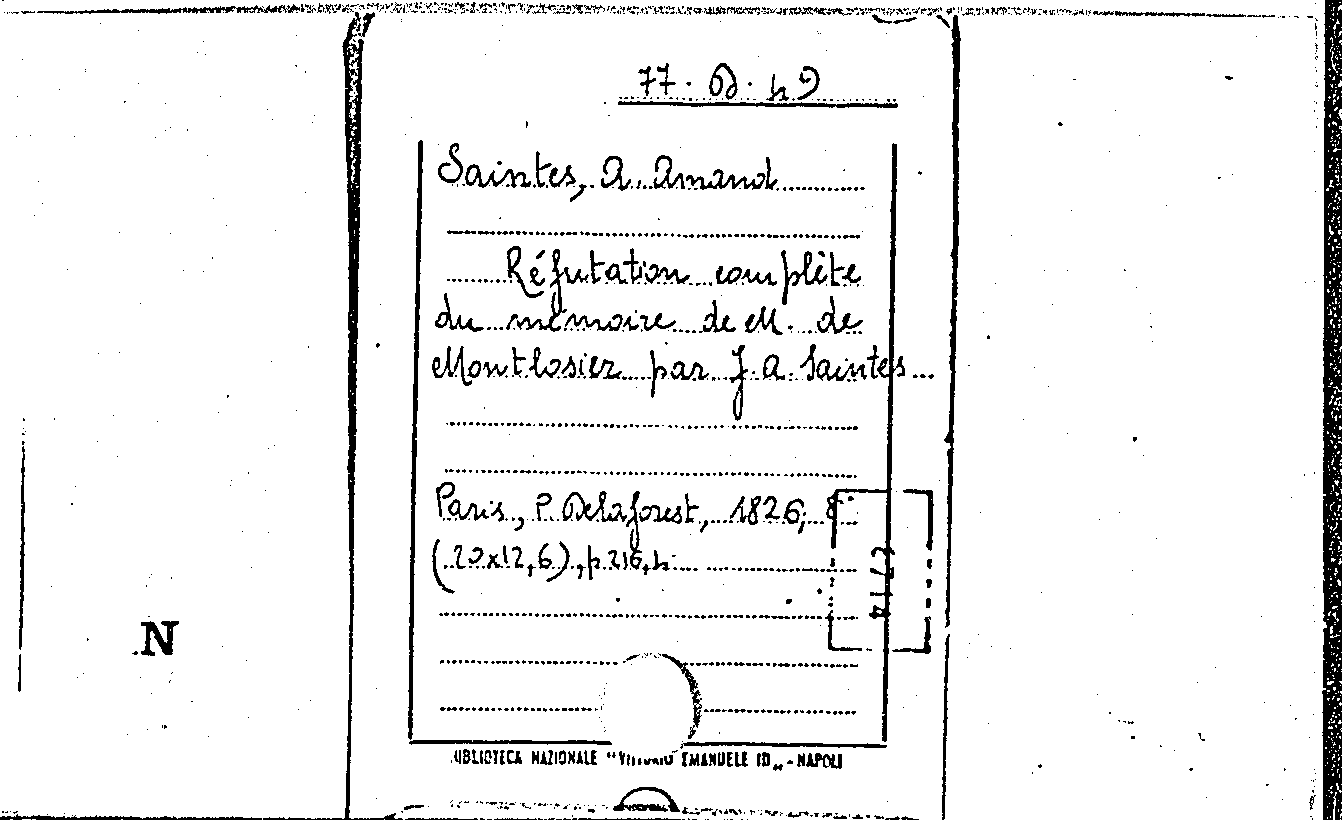 77. D. 49
Saintes, A. Amand
Réfutation complète
du mémoire de M. de
Montlosier par J. A. Saintes...
Paris, P. Delaforest, 1826, 8°
(20x12,6), p. 216, h.
6714
N
BIBLIOTECA NAZIONALE "VITTORIO EMANUELE III„ - NAPOLI